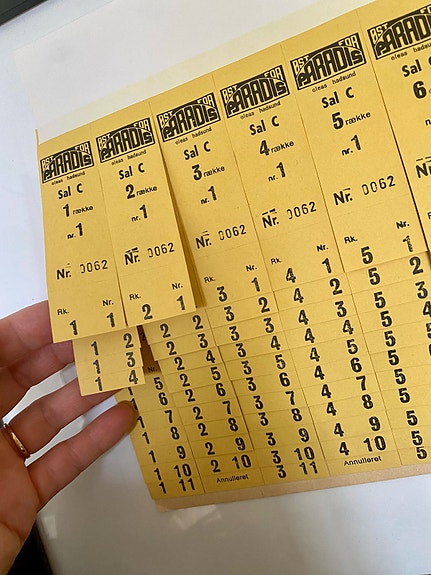 ØST FOR
PARADIS
oleas hadsund
Sal C
1 række
nr. 1
Nr. 0062
Rk. Nr.
1 1
ØST FOR
PARADIS
oleas hadsund
Sal C
2 række
nr. 1
Nr. 0062
Rk. Nr.
2 1
ØST FOR
PARADIS
oleas hadsund
Sal C
3 række
nr. 1
Nr. 0062
3 1
ØST FOR
PARADIS
oleas hadsund
Sal C
4 række
nr. 1
Nr. 0062
4 1
ØST FOR
PARADIS
oleas hadsund
Sal C
5 række
nr. 1
Nr. 0062
5 1
ØST FOR
PARADIS
Sal C
6
1 2
1 3
1 4
1 5
1 6
1 7
1 8
1 9
1 10
1 11
2 2
2 3
2 4
2 5
2 6
2 7
2 8
2 9
2 10
Annulleret
3 2
3 3
3 4
3 5
3 6
3 7
3 8
3 9
3 10
3 11
4 2
4 3
4 4
4 5
4 6
4 7
4 8
4 9
4 10
Annulleret
5 2
5 3
5
5
5
5
5
5
5
5